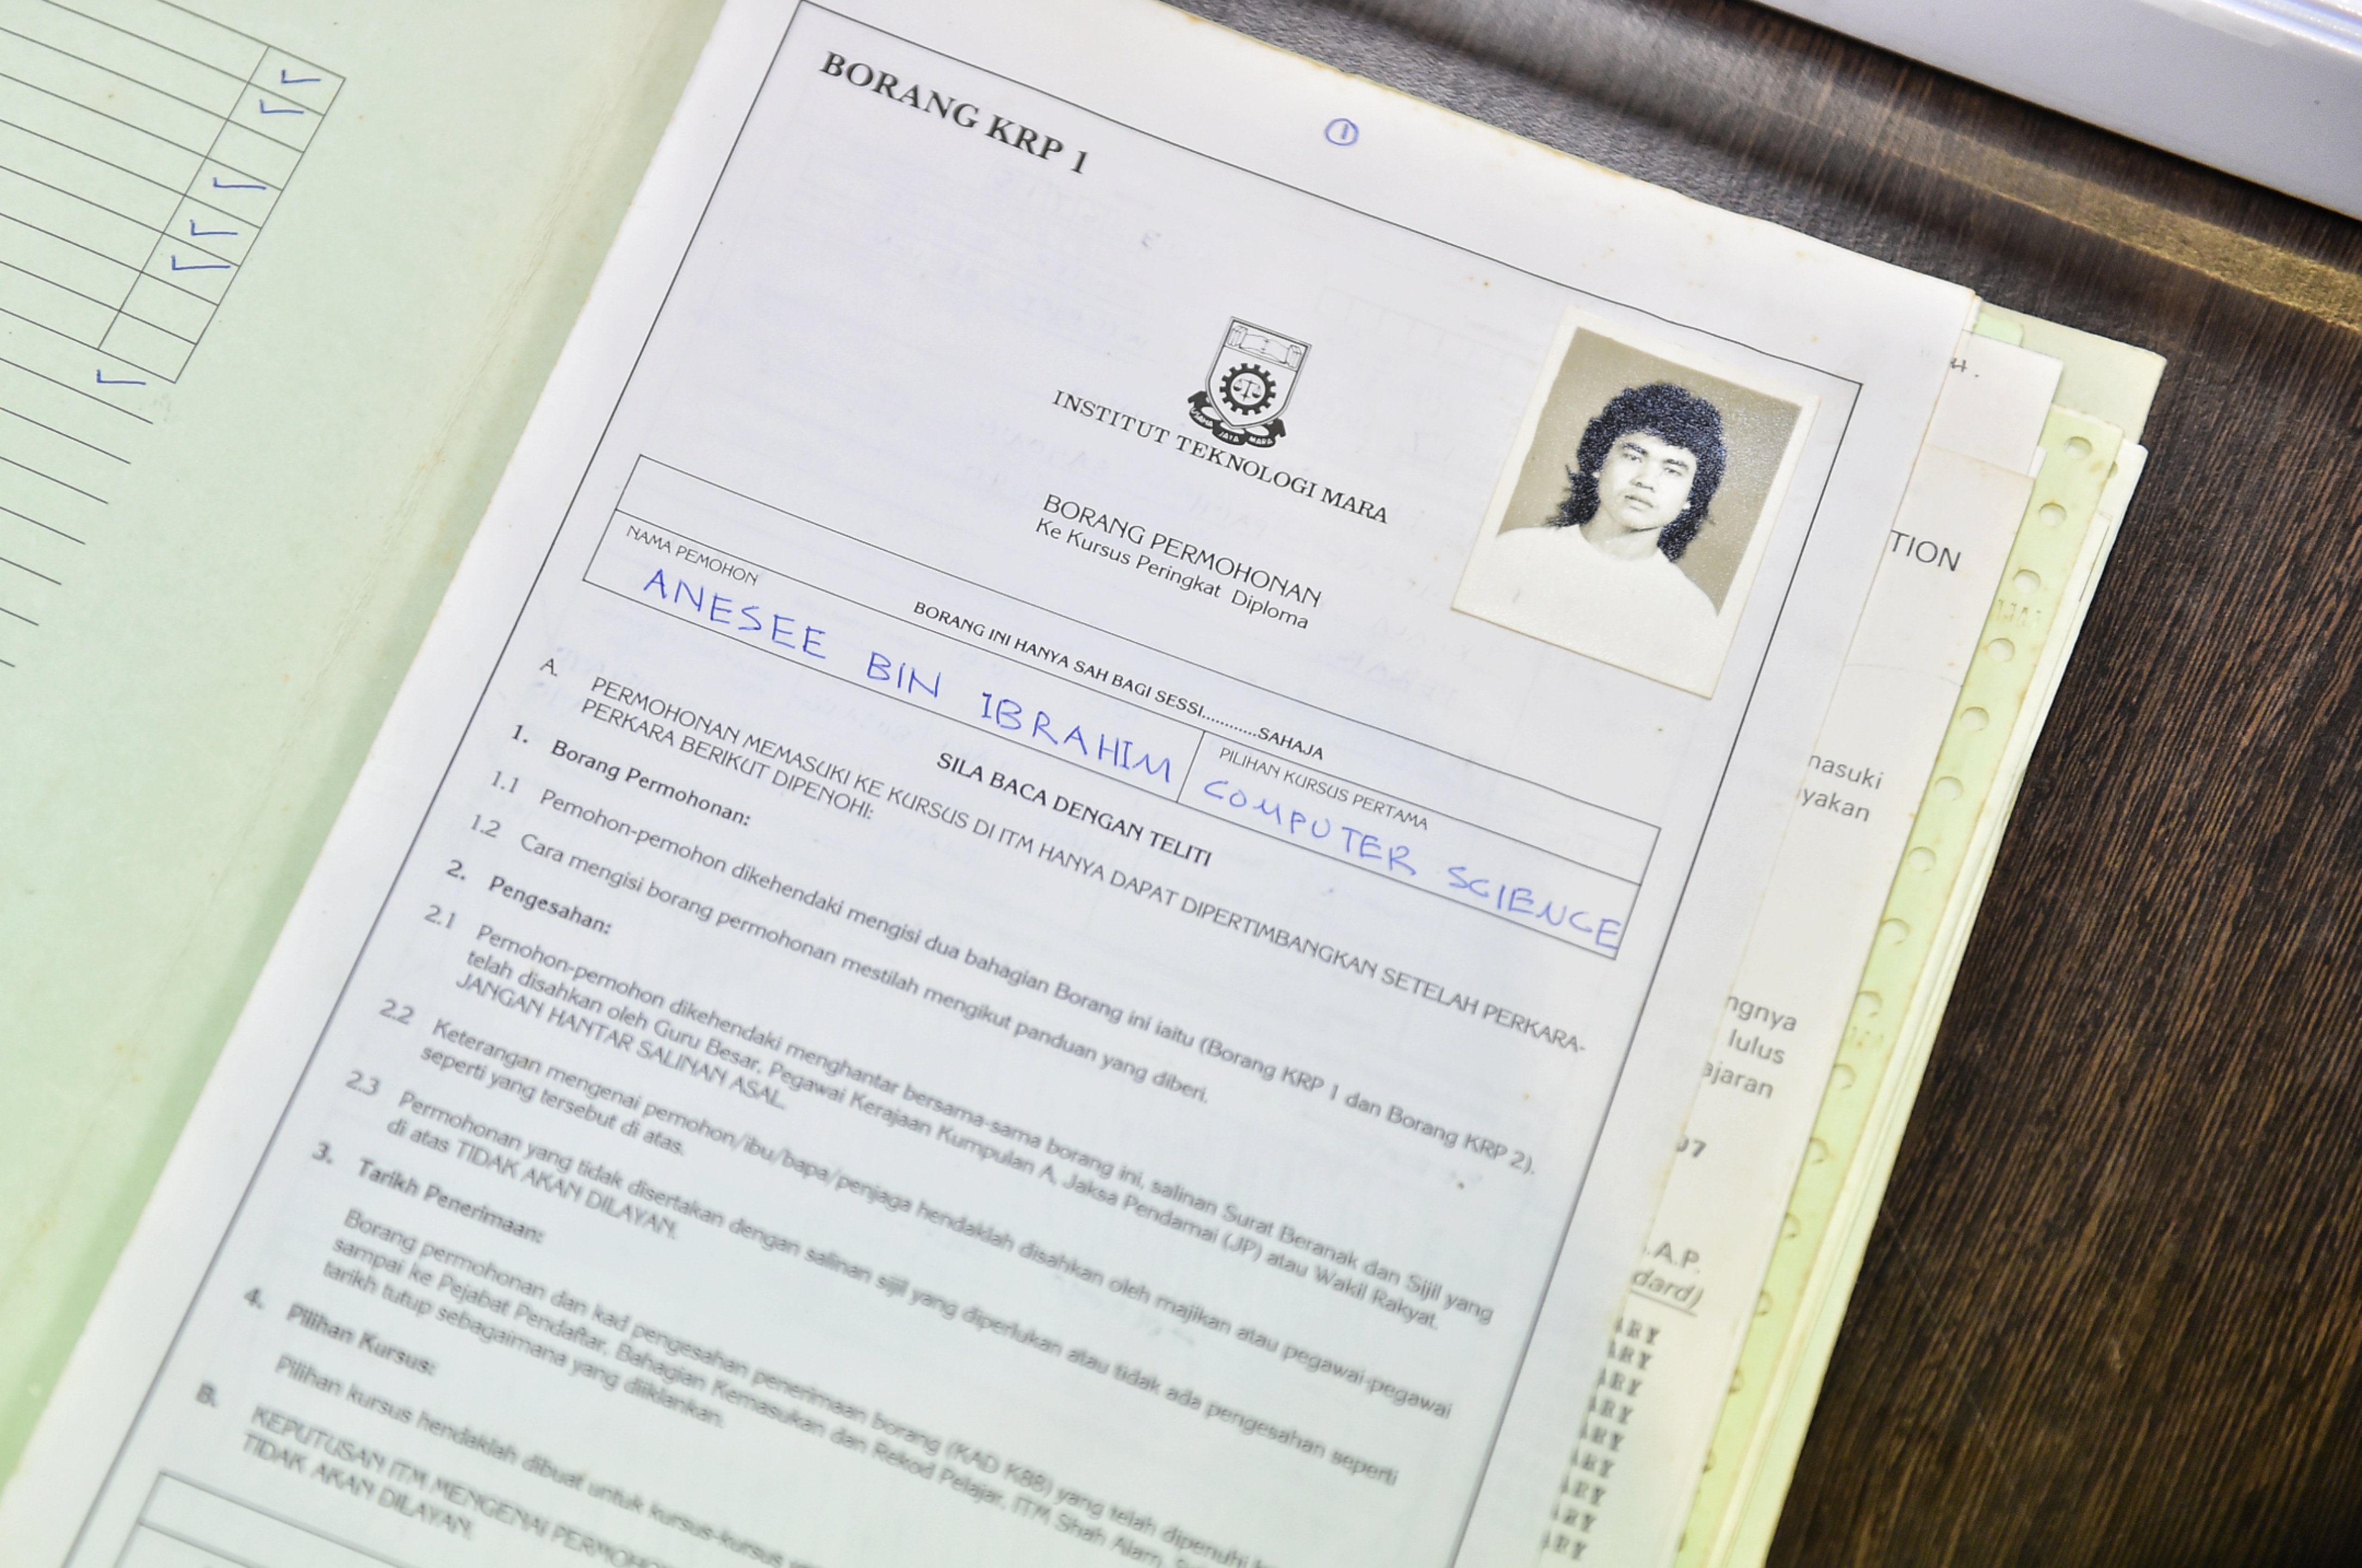 BORANG KRP 1
1
USAHA JAYA MARA
INSTITUT TEKNOLOGI MARA
BORANG PERMOHONAN
Ke Kursus Peringkat Diploma
BORANG INI HANYA SAH BAGI SESSI...........SAHAJA
NAMA PEMOHON
ANESEE BIN IBRAHIM
PILIHAN KURSUS PERTAMA
COMPUTER SCIENCE
SILA BACA DENGAN TELITI
A. PERMOHONAN MEMASUKI KE KURSUS DI ITM HANYA DAPAT DIPERTIMBANGKAN SETELAH PERKARA-
PERKARA BERIKUT DIPENOHI:
1. Borang Permohonan:
1.1 Pemohon-pemohon dikehendaki mengisi dua bahagian Borang ini iaitu (Borang KRP 1 dan Borang KRP 2).
1.2 Cara mengisi borang permohonan mestilah mengikut panduan yang diberi.
2. Pengesahan:
2.1 Pemohon-pemohon dikehendaki menghantar bersama-sama borang ini, salinan Surat Beranak dan Sijil yang
telah disahkan oleh Guru Besar, Pegawai Kerajaan Kumpulan A, Jaksa Pendamai (JP) atau Wakil Rakyat.
JANGAN HANTAR SALINAN ASAL.
2.2 Keterangan mengenai pemohon/ibu/bapa/penjaga hendaklah disahkan oleh majikan atau pegawai-pegawai
seperti yang tersebut di atas.
2.3 Permohonan yang tidak disertakan dengan salinan sijil yang diperlukan atau tidak ada pengesahan seperti
di atas TIDAK AKAN DILAYAN.
3. Tarikh Penerimaan:
Borang permohonan dan kad pengesahan penerimaan borang (KAD K88) yang telah dipenuhi
sampai ke Pejabat Pendaftar, Bahagian Kemasukan dan Rekod Pelajar, ITM Shah Alam,
tarikh tutup sebagaimana yang diiklankan.
4. Pilihan Kursus:
Pilihan kursus hendaklah dibuat untuk kursus-kursus
B. KEPUTUSAN ITM MENGENAI
TIDAK AKAN DILAYAN.
TION
nasuki
yakan
ngnya
lulus
ajaran
07
.A.P.
dard)
ARY
ARY
ARY
ARY
ARY
ARY
ARY
ARY
ARY